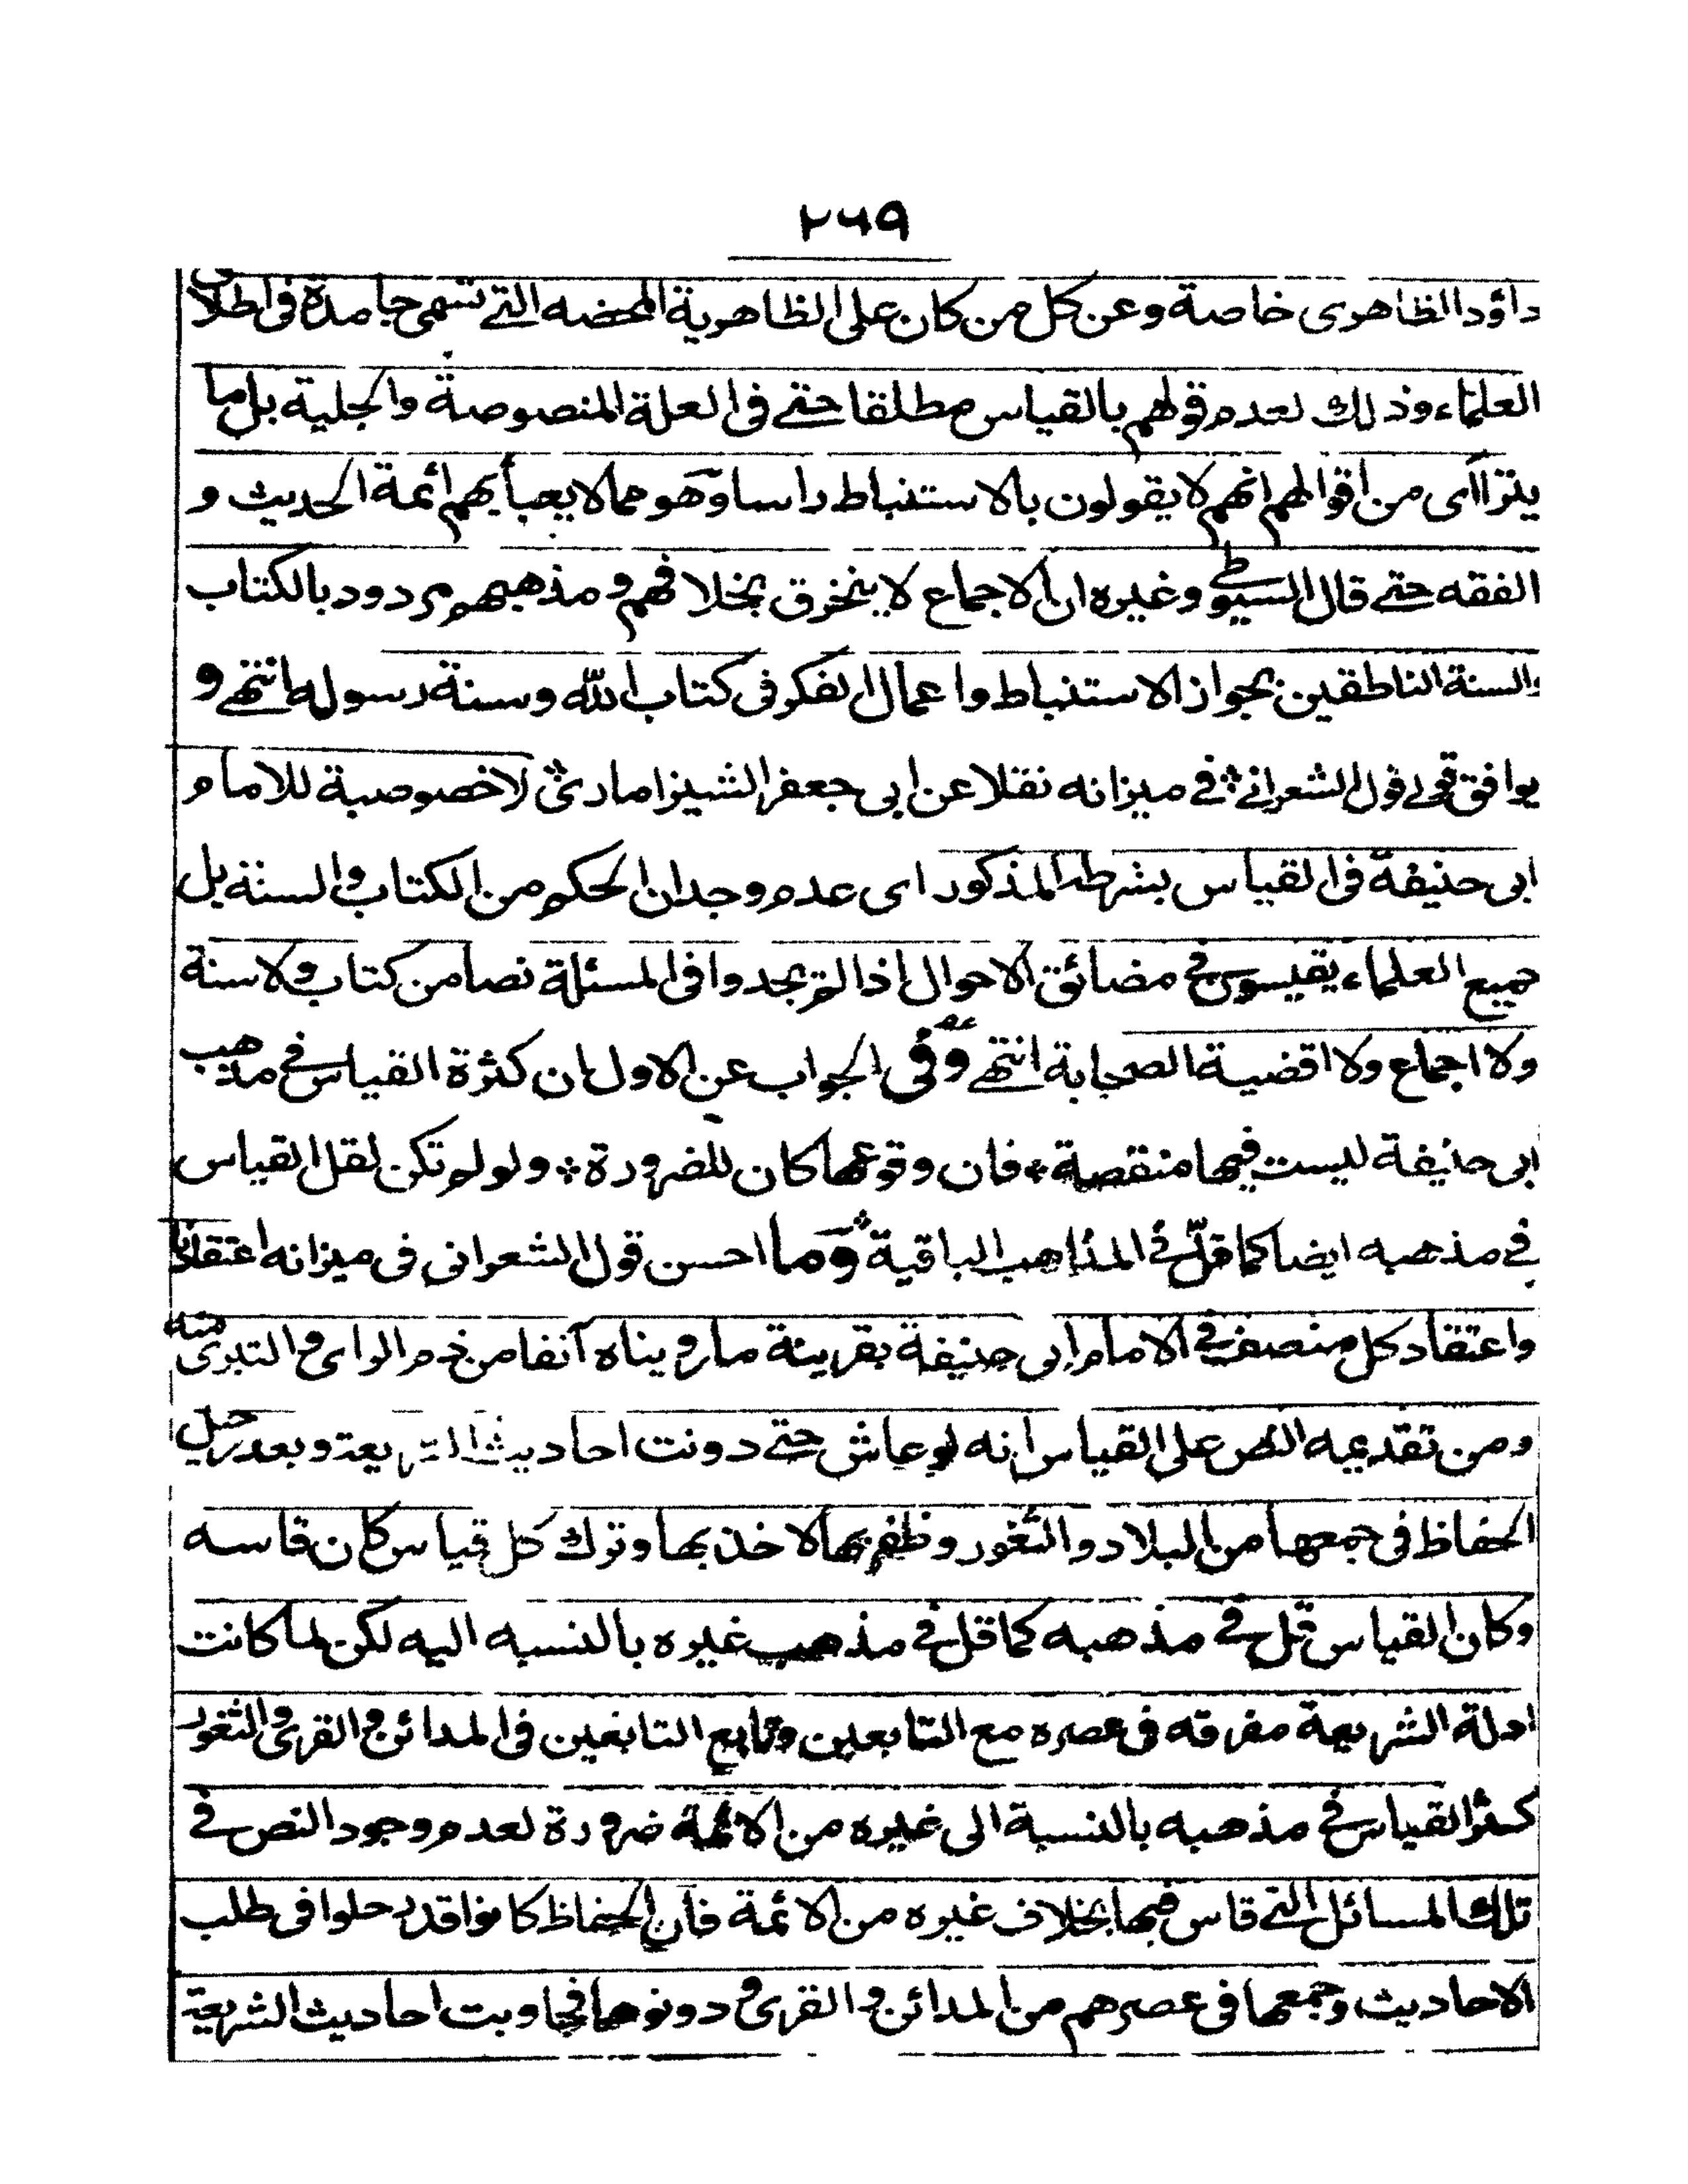 ٢٦٩
داؤد الظاهرى خاصة وعن كل من كان على الظاهرية المحضه التي تسمى جامدة فى اطلاق
العلماء وذلك لعدم قولهم بالقياس مطلقا حتى فى العلة المنصوصة والجلية بل ما
يتراآى من اقوالهم انهم لا يقولون بالاستنباط راسا وهو مما لا يعبأ بهم ائمة الحديث و
الفقه حتى قال السيوطي وغيره ان الاجماع لا ينخرق بخلافهم و مذهبهم مردود بالكتاب
والسنة الناطقين بجواز الاستنباط واعمال الفكر فى كتاب الله وسنة رسوله انتهى و
يوافق قولى قول الشعرانى في ميزانه نقلا عن ابى جعفر الشيزامارى لا خصوصية للامام
ابى حنيفة فى القياس بشرطه المذكور اى عدم وجدان الحكم من الكتاب والسنة بل
جميع العلماء يقيسون في مضائق الاحوال اذا لم يجدوا فى المسئلة نصا من كتاب ولا سنة
ولا اجماع ولا اقضية الصحابة انتهى وفى الجواب عن الاول ان كثرة القياس في مذهب
ابى حنيفة ليست فيها منقصة فان وقوعها كان للضرورة ولو لم تكن لقل القياس
في مذهبه ايضا كما قلّ في المذاهب الباقية وما احسن قول الشعرانى فى ميزانه اعتقادنا
واعتقاد كل منصف في الامام ابى حنيفة بقرينة ما رويناه آنفا من ذم الراى والتبرى منه
ومن تقديمه النص على القياس انه لو عاش حتى دونت احاديث الشريعة وبعد رحيل
الحفاظ فى جمعها من البلاد والثغور وظفر بها لاخذ بها وترك كل قياس كان قاسه
وكان القياس قل في مذهبه كما قل في مذهب غيره بالنسبه اليه لكن لما كانت
ادلة الشريعة مفرقه فى عصره مع التابعين وتابع التابعين فى المدائن والقرى والثغور
كثر القياس في مذهبه بالنسبة الى غيره من الائمة ضرورة لعدم وجود النص في
تلك المسائل التي قاس فيها بخلاف غيره من الائمة فان الحفاظ كانوا قد رحلوا فى طلب
الاحاديث وجمعها فى عصرهم من المدائن والقرى و دونوها فجاوبت احاديث الشريعة